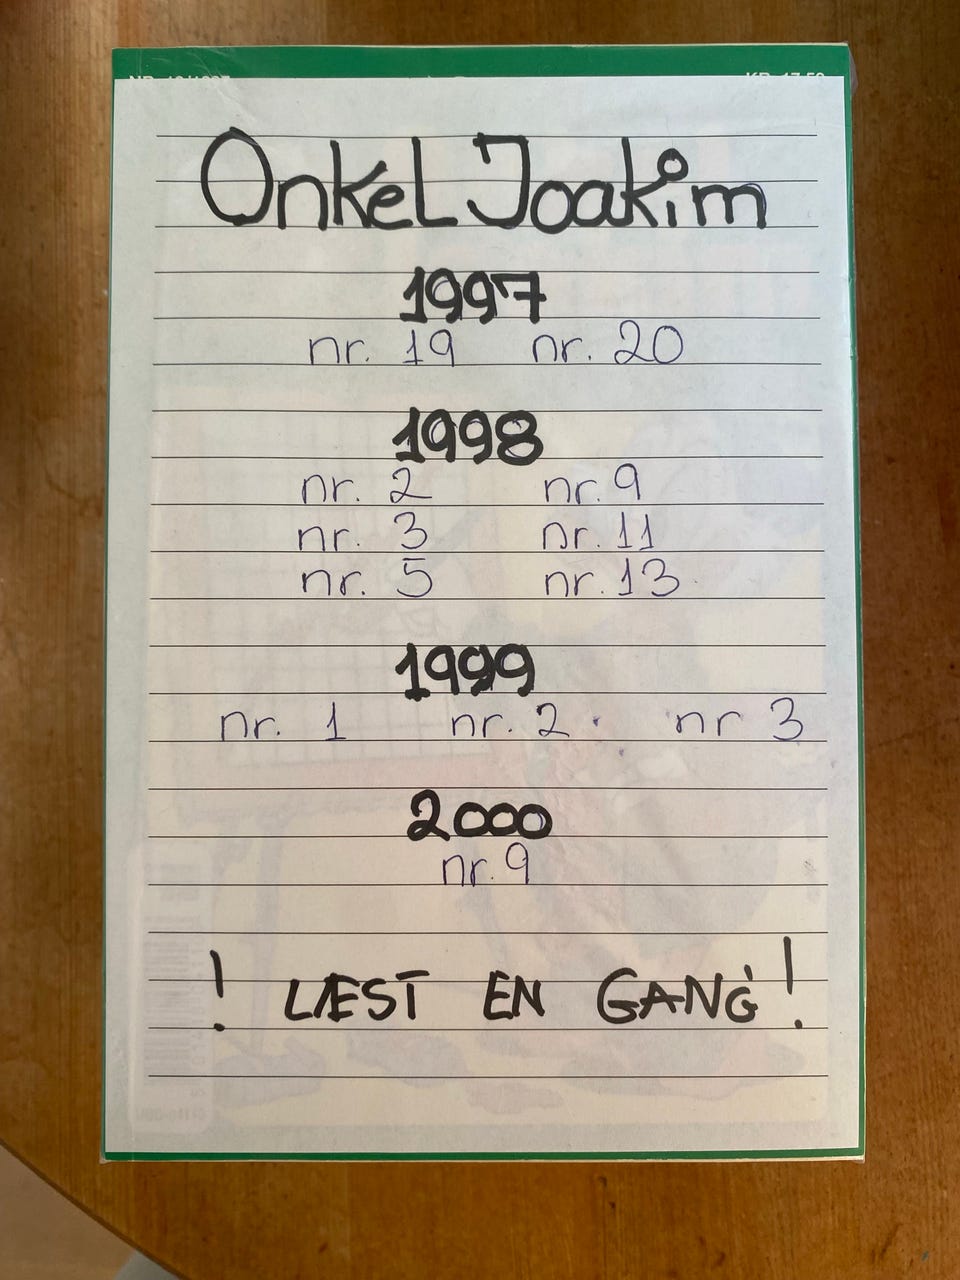 Onkel Joakim
1997
nr. 19 nr. 20
1998
nr. 2 nr. 9
nr. 3 nr. 11
nr. 5 nr. 13
1999
nr. 1 nr. 2 nr 3
2000
nr. 9
! LÆST EN GANG !